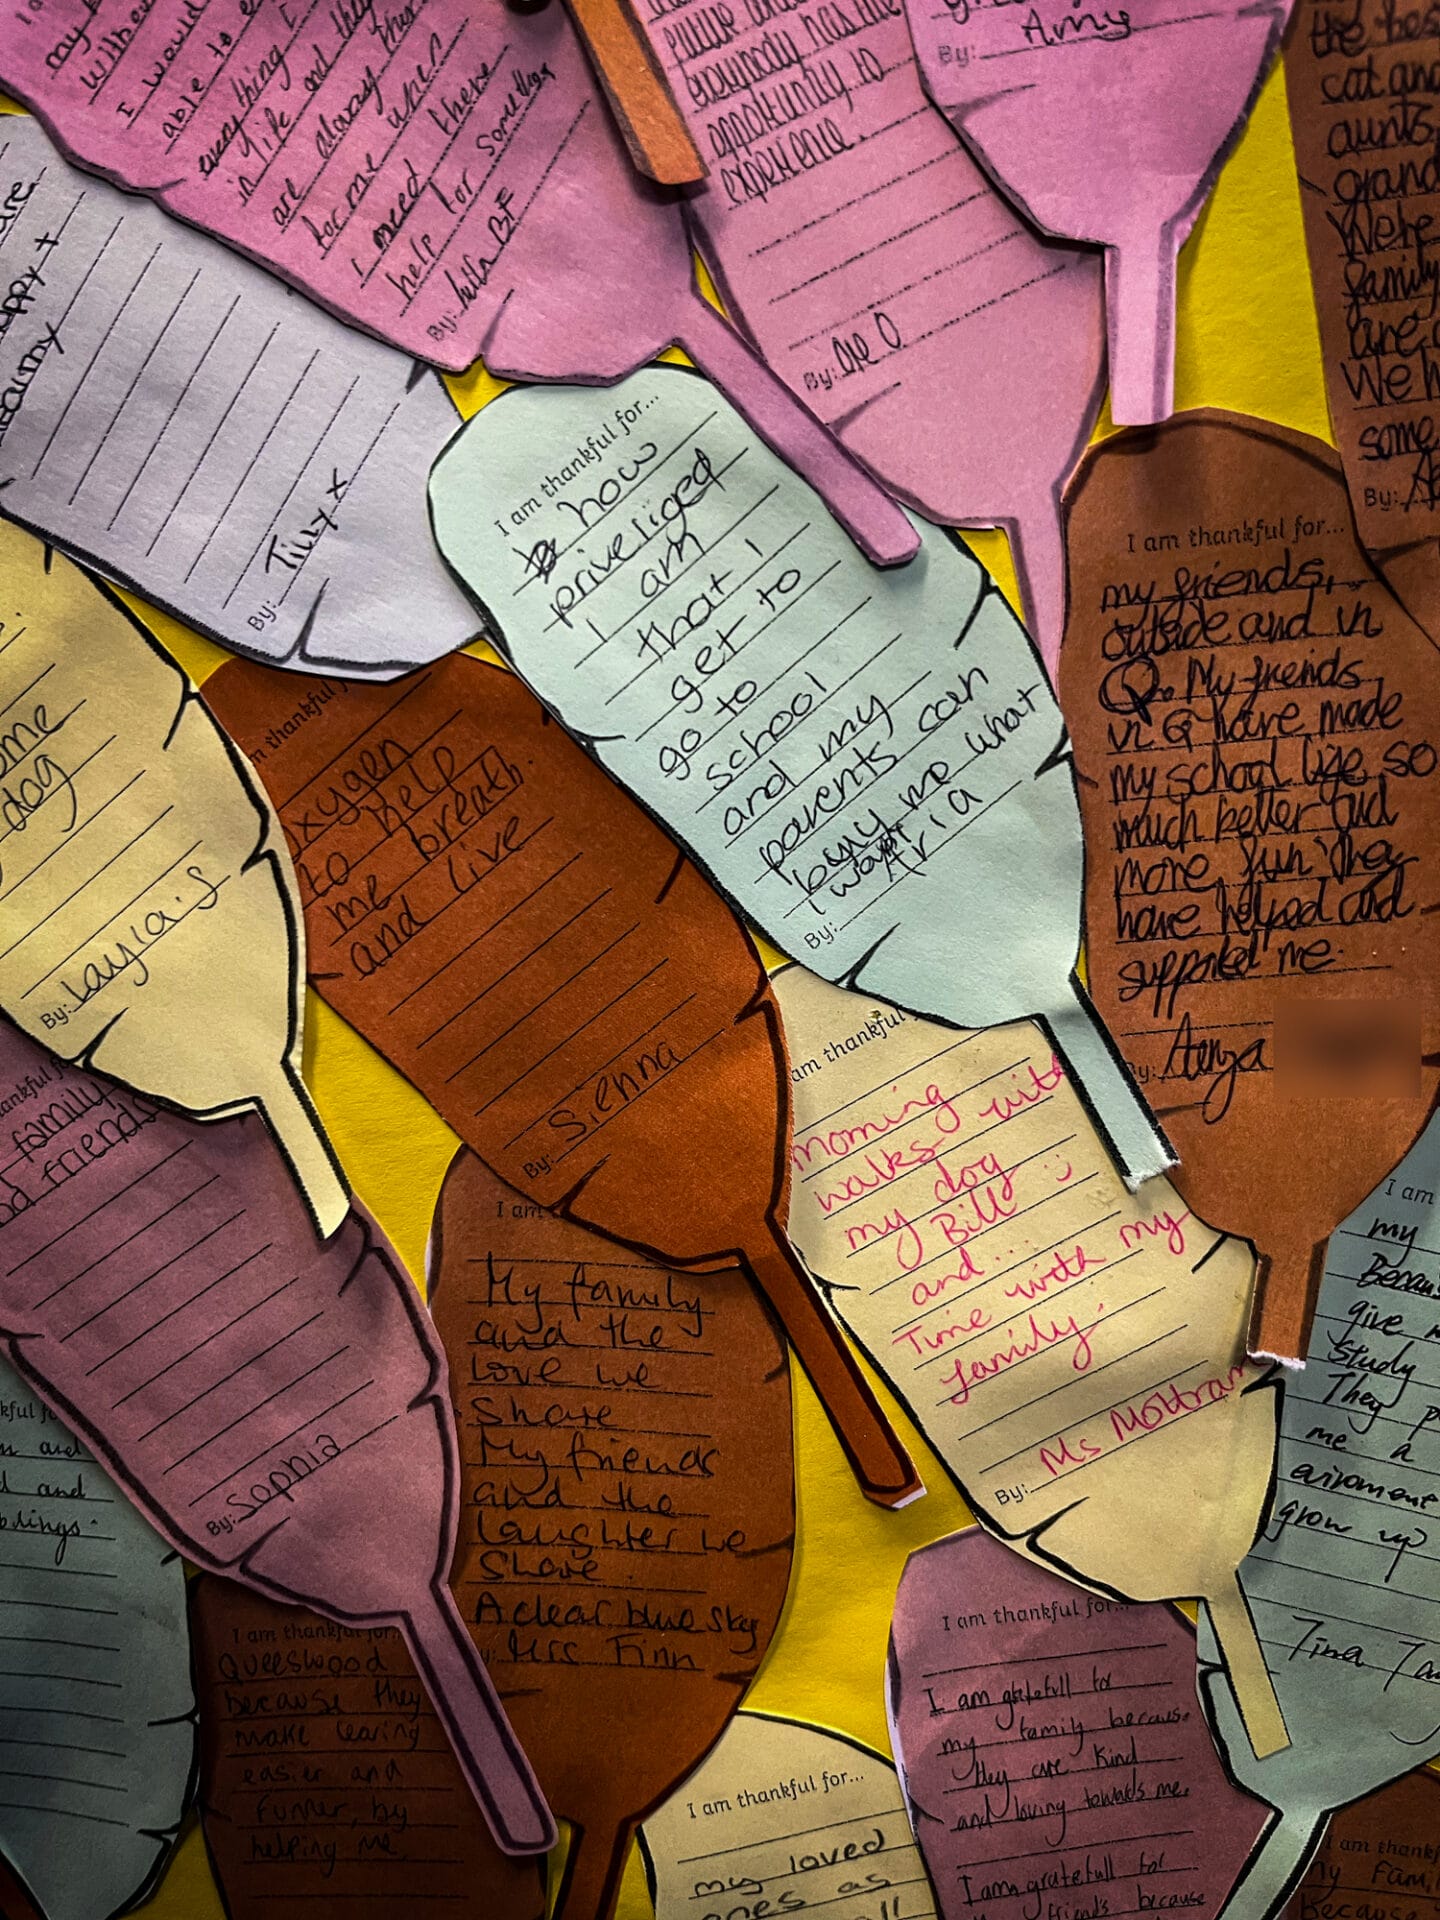 I would
able to
every thing I
in life and they
are always there
for me when
i need there
help for something
By: Julia BF
future and
everybody has the
opportunity to
experience.
By:
By: Amy
the best
cat and
aunts
grand
We're
family
are
We h
some
By:
care.
happy +
By: Tilly x
I am thankful for...
how
priveliged
I am
that I
get to
go to
school
and my
parents can
buy me what
i want
By: Atria
I am thankful for...
my friends,
outside and in
Q. My friends
in Q have made
my school life so
much better and
more fun they
have helped and
supported me.
By: Aenza
dog
By: Layla.S
m thankful
oxygen
to help
me breath.
and live
By: Sienna
am thankful
Morning
walks with
my dog
Bill
and...
Time with my
family.
By: Ms Mottram
ankful fo
family
friends
By: Sophia
I am
My family
and the
love we
Share
My friends
and the
laughter we
Share.
A clear blue sky
Mrs Finn
I am
my
Becaus
give
Study
They p
me a
evironment
grow up
Tina
and
d and
blings.
I am thankful for...
Queeswood
because they
make learing
easier and
funner, by
helping me.
I am thankful for...
my loved
ones as
I am thankful for...
I am gratefull for
my family because
they are kind
and loving towards me.
I am gratefull for
friend's because
I am thankf
my Fam
because